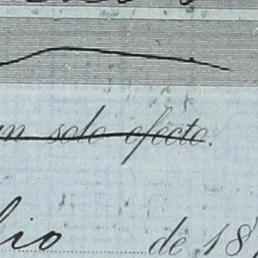 un solo efecto.
lio de 18